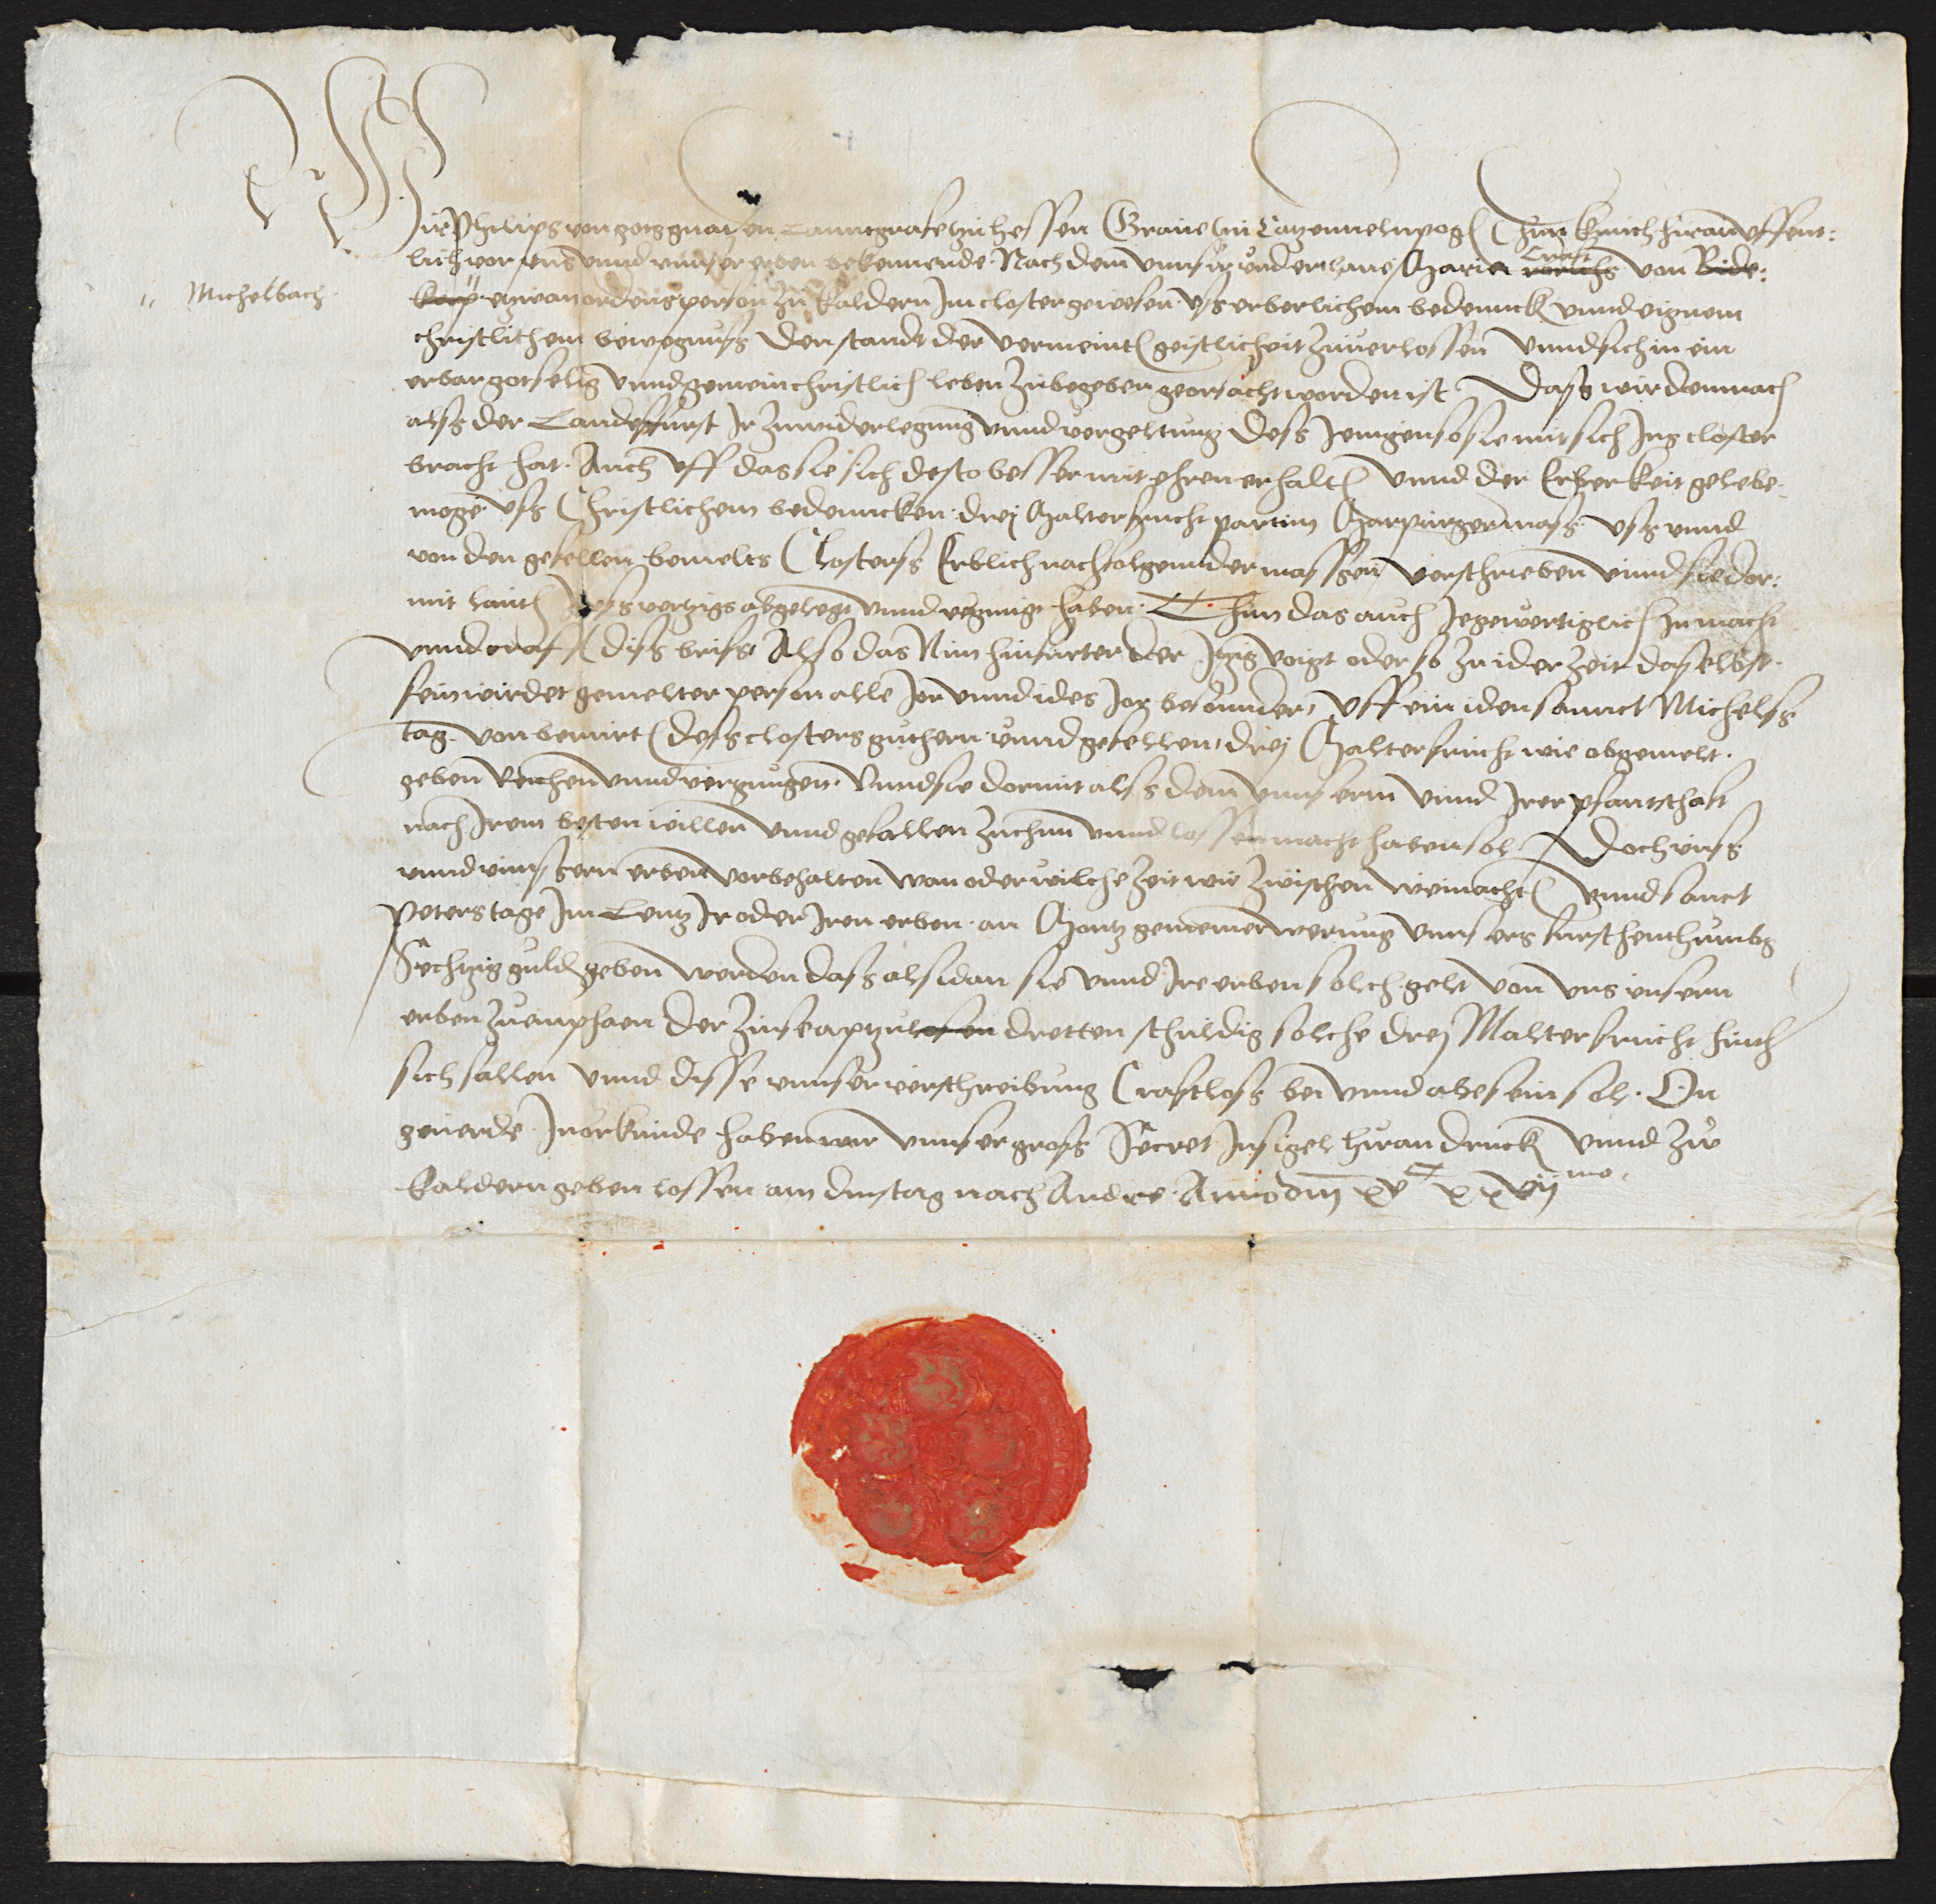 Wir Philips von gots gnaden Lanntgrafe zu Hessen Graue zu Catzennelnpog(en) Thun kunth hiran uffent:
lich vor uns unnd unnser erben bekennende Nach dem unnser underthane Maria Craft von Bide:
Michelbach
kapp etzwan ordensperson zu kaldern Im closter gewesen uss erberlichem bedennck unnd eignem
christlichem bewegnuss den standt der vermeint(en) geistlicheit zuuerlossen unnd sich in ein
erbar gotselig unnd gemein christlich leben zu begeben georsacht worden ist Dass wir demnach
alss der Landesfurst Ir zu widerlegung unnd vergeltung dess Jenigen so sie mit sich Ins closter
bracht hat. Auch uff das sie sich desto besser mit ehren erhalt(en) unnd der Erberkeit gelebe(n)
moge uss Christlichem bedenncken drej Malter frucht partim Marpurger mass uss unnd
von den gefellen bemelts Closterss Erblich nachfolgennder massen verschrieben unnd sie dor:
mit laut(s) Irss vertzigs abgelegt unnd vernuigt haben. Thun das auch Jegewertiglich In macht
unnd craft diss briffs Also das Nun hinfurter der Itzig voigt oder so zu ider zeit daselbst
sein wirdet gemelter person alle Jor unnd ides Jor besonnder, uff ein iden sannct Michelss
tag von berurt(s) dess closters guthern unnd gefellen, drej Malter frucht wie obgemelt.
geben Reichen unnd vergnugen. Unnd sie dormit alss dem unnserm unnd Irer pfantschaft
nach Irem besten willen unnd gefallen zuthun unnd lossen macht haben sol. Doch unss
unnd unnssern erben vorbehalten wan oder wilche zeit wir zwischen weinacht(en) unnd sanct
Peters tage Im Lentz Ir oder Iren erben an Montz gemeiner werung unnsers furstenthumbs
Sechtzig guld(en) geben werden dass alsdan sie unnd Ire erben solch gelt von uns unsern
erben zu empfaen der zinse aptzulosen dretten schuldig solche drej Malter frucht hinth(er)
sich fallen unnd disse unnser verschreibung Craftloss ben unnd abe sein sol. On
geuerde. In orkunde haben wir unnser gross Secret Insigel hiran druck(en) unnd zu
kaldern geben lossen am dinstag nach Andree Anno d(omi)nj xv^c xxvij^mo.